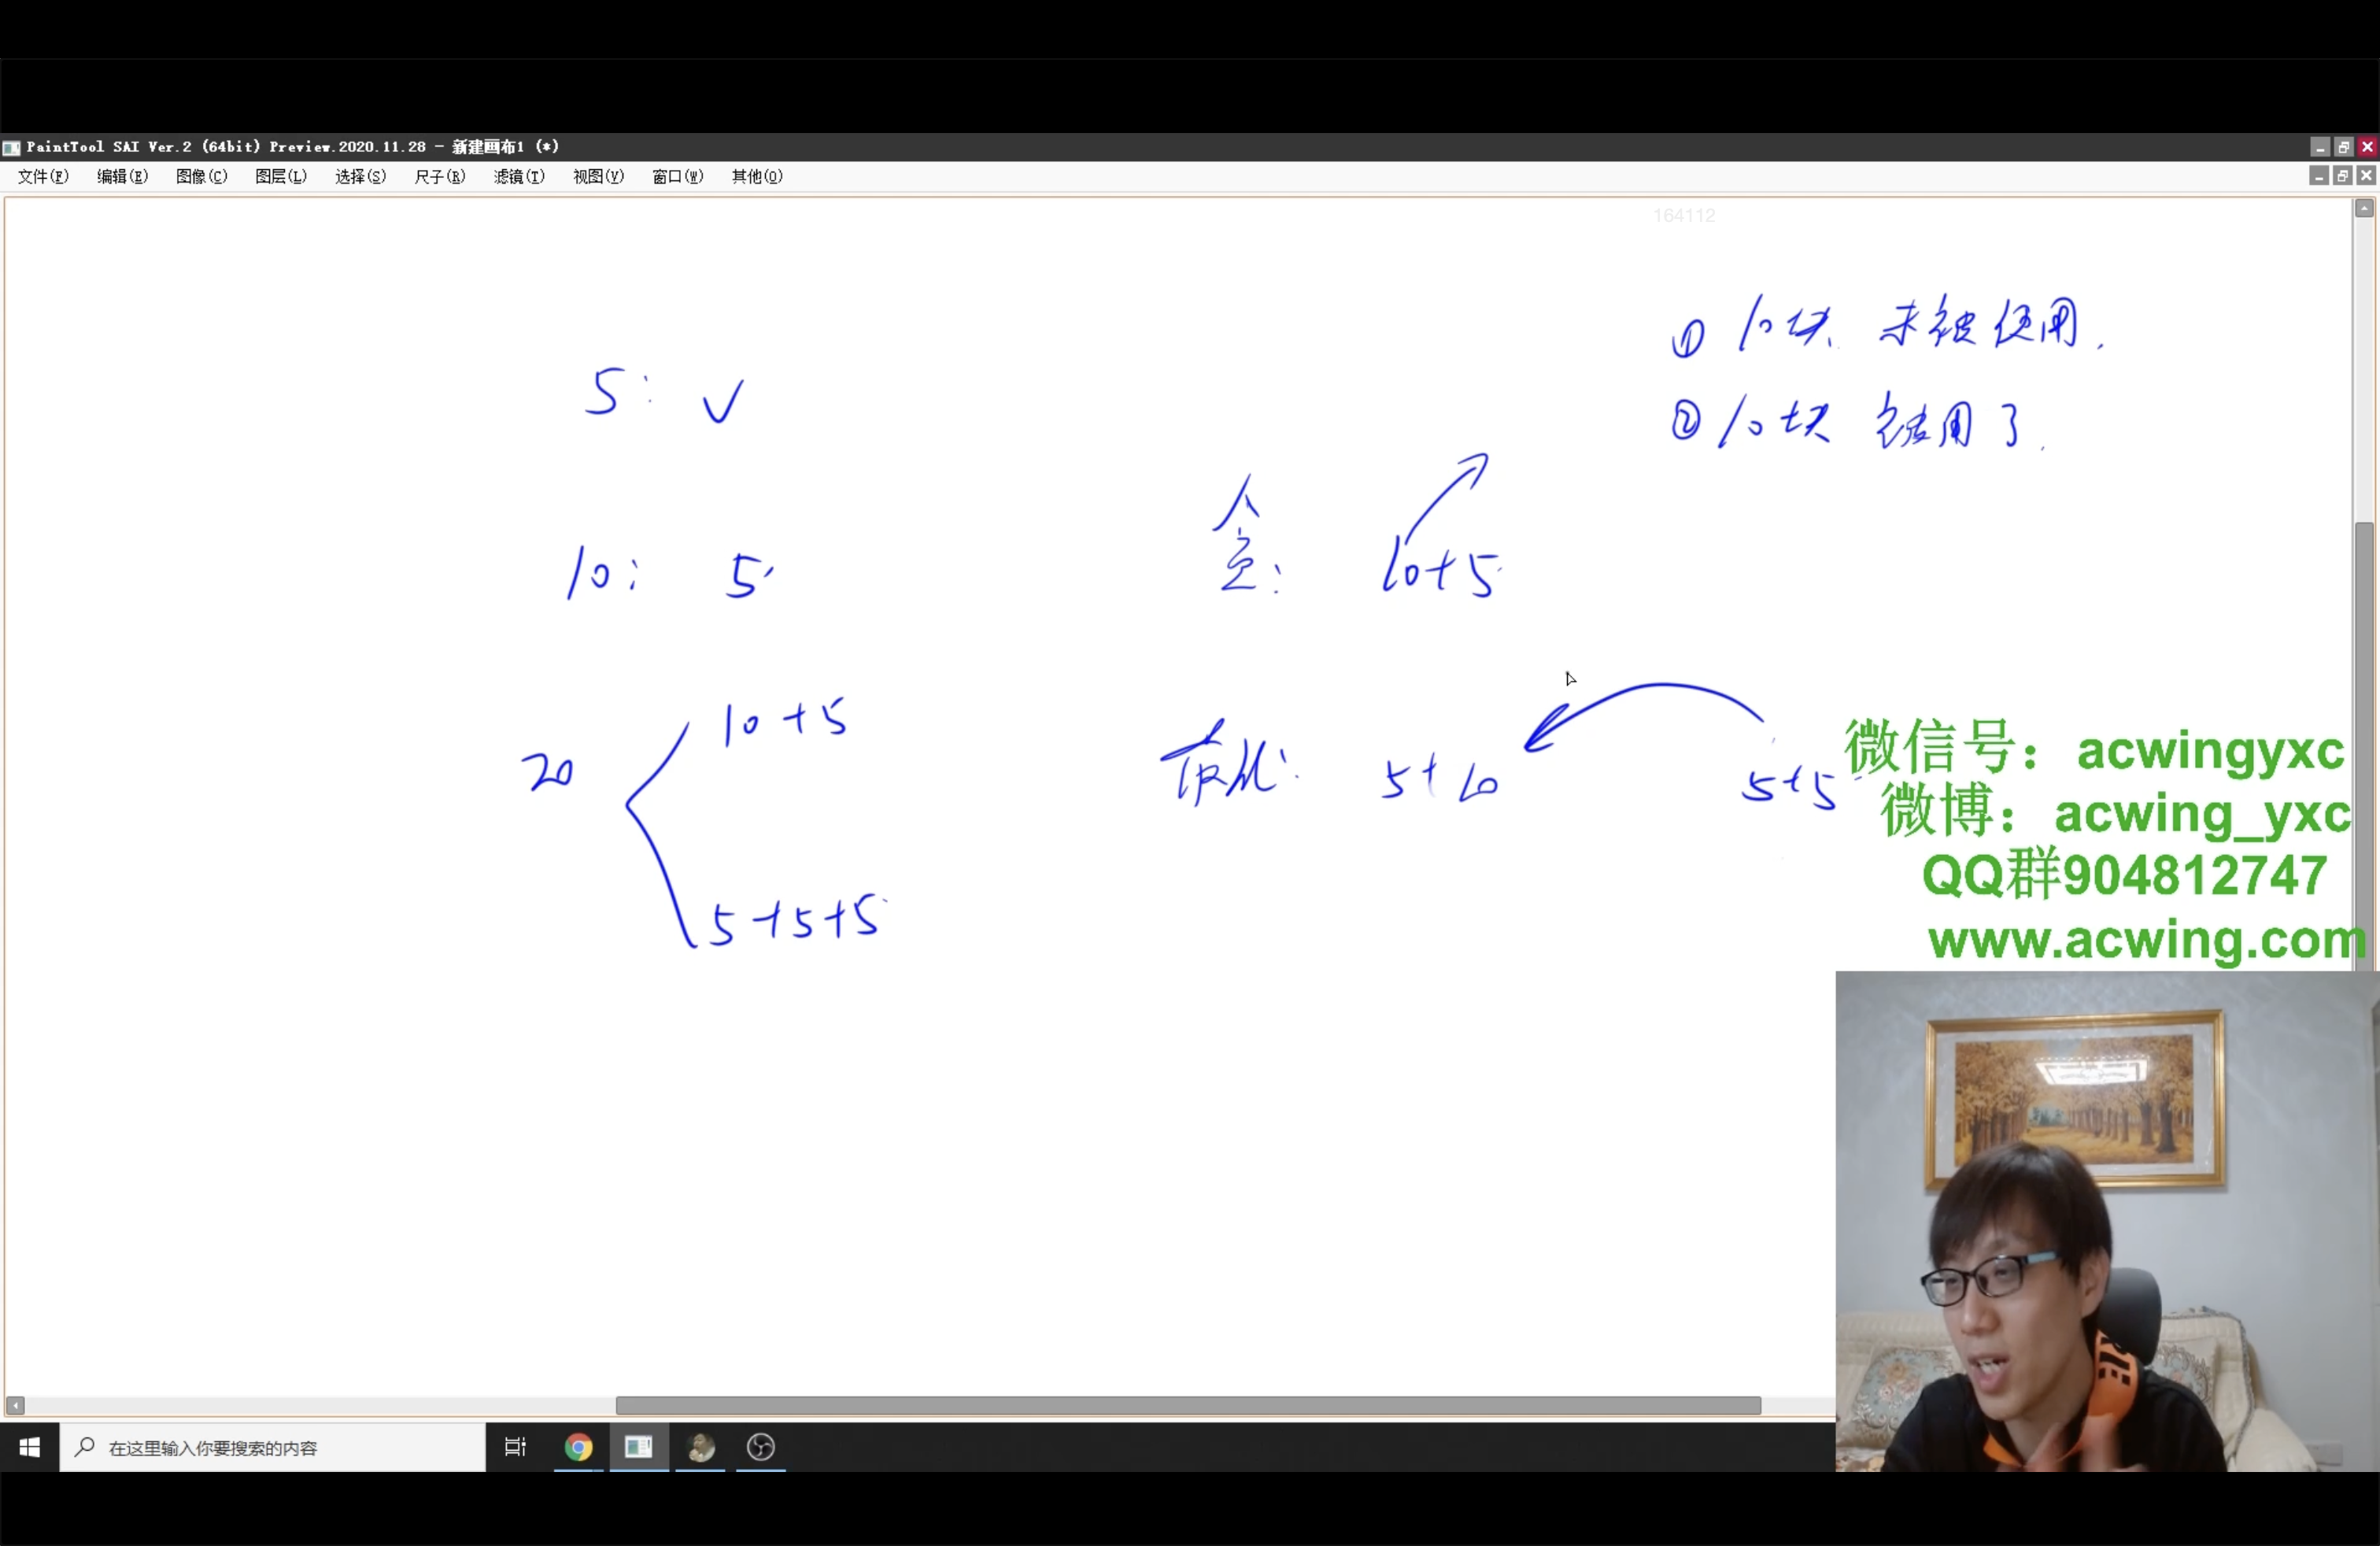 PaintTool SAI Ver.2 (64bit) Preview.2020.11.28 - 新建画布1 (*)
文件(F) 编辑(E) 图像(C) 图层(L) 选择(S) 尺子(R) 滤镜(T) 视图(V) 窗口(W) 其他(O)
164112
① 10块 未被使用.
② 10块 被用了.
5: ✓
10: 5
贪: 10+5
20
10+5
5+5+5
最优: 5+10
5+5
微信号：acwingyxc
微博：acwing_yxc
QQ群904812747
www.acwing.com
在这里输入你要搜索的内容